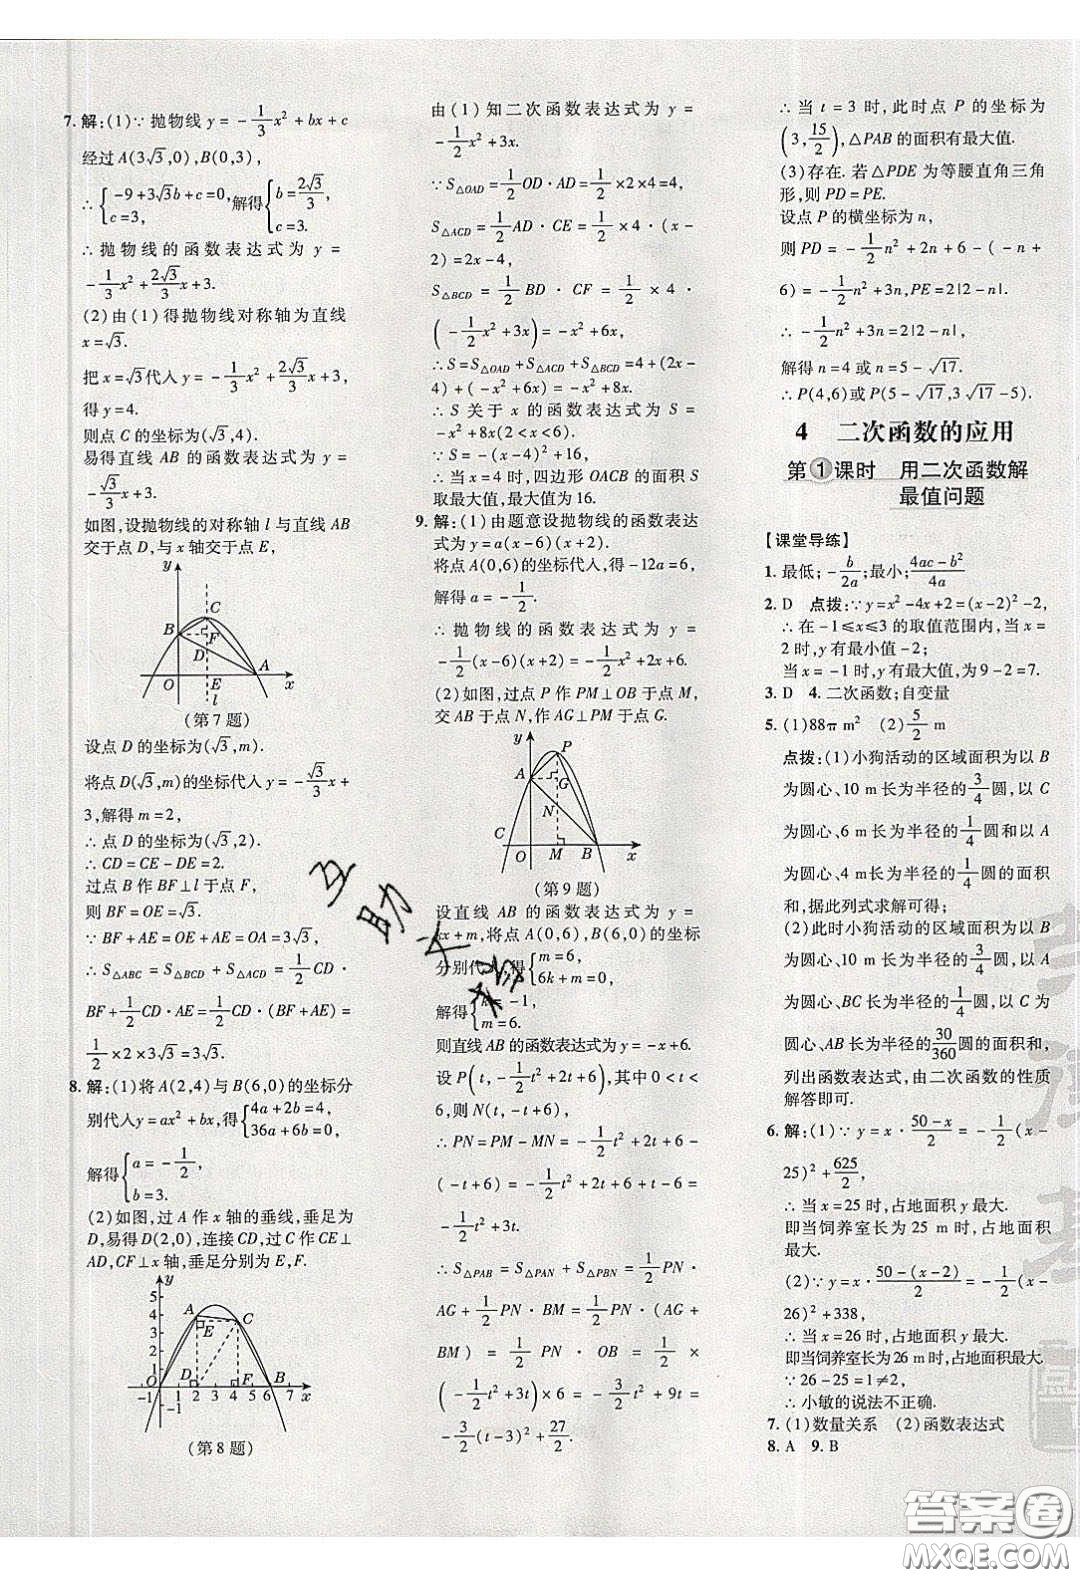 7. 解:(1)∵抛物线 y=-1/3x²+bx+c
经过 A(3√3,0),B(0,3),
∴{-9+3√3b+c=0, c=3. 解得{b=2√3/3, c=3.
∴抛物线的函数表达式为 y=
-1/3x²+2√3/3x+3.
(2)由(1)得抛物线对称轴为直线
x=√3.
把 x=√3代入 y=-1/3x²+2√3/3x+3,
得 y=4.
则点 C 的坐标为(√3,4).
易得直线 AB 的函数表达式为 y=
-√3/3x+3.
如图,设抛物线的对称轴 l 与直线 AB
交于点 D,与 x 轴交于点 E,
y
C
B
F
D
A
O
E
x
l
(第 7 题)
设点 D 的坐标为(√3,m).
将点 D(√3,m)的坐标代入 y=-√3/3x+
3,解得 m=2,
∴点 D 的坐标为(√3,2).
∴CD=CE-DE=2.
过点 B 作 BF⊥l 于点 F,
则 BF=OE=√3.
∵BF+AE=OE+AE=OA=3√3,
∴S△ABC=S△BCD+S△ACD=1/2CD·
BF+1/2CD·AE=1/2CD·(BF+AE)=
1/2×2×3√3=3√3.
8. 解:(1)将 A(2,4)与 B(6,0)的坐标分
别代入 y=ax²+bx,得{4a+2b=4, 36a+6b=0,
解得{a=-1/2, b=3.
(2)如图,过 A 作 x 轴的垂线,垂足为
D,易得 D(2,0),连接 CD,过 C 作 CE⊥
AD,CF⊥x 轴,垂足分别为 E,F.
y
5
4
3
2
1
A
E
C
D
F
B
-1 O 1 2 3 4 5 6 7 x
-1
(第 8 题)
由(1)知二次函数表达式为 y=
-1/2x²+3x.
∵S△OAD=1/2OD·AD=1/2×2×4=4,
S△ACD=1/2AD·CE=1/2×4×(x-
2)=2x-4,
S△BCD=1/2BD·CF=1/2×4·
(-1/2x²+3x)=-x²+6x,
∴S=S△OAD+S△ACD+S△BCD=4+(2x-
4)+(-x²+6x)=-x²+8x.
∴S 关于 x 的函数表达式为 S=
-x²+8x(2<x<6).
∵S=-(x-4)²+16,
∴当 x=4 时,四边形 OACB 的面积 S
取最大值,最大值为 16.
9. 解:(1)由题意设抛物线的函数表达
式为 y=a(x-6)(x+2).
将点 A(0,6)代入,得-12a=6,
解得 a=-1/2.
∴抛物线的函数表达式为 y=
-1/2(x-6)(x+2)=-1/2x²+2x+6.
(2)如图,过点 P 作 PM⊥OB 于点 M,
交 AB 于点 N,作 AG⊥PM 于点 G.
y
P
A
G
N
C
O
M
B
x
(第 9 题)
设直线 AB 的函数表达式为 y=
kx+m,将点 A(0,6),B(6,0)的坐标
分别代入,得{m=6, 6k+m=0,
解得{k=-1, m=6.
则直线 AB 的函数表达式为 y=-x+6.
设 P(t,-1/2t²+2t+6),其中 0<t<
6,则 N(t,-t+6).
∴PN=PM-MN=-1/2t²+2t+6-
(-t+6)=-1/2t²+2t+6+t-6=
-1/2t²+3t.
∴S△PAB=S△PAN+S△PBN=1/2PN·
AG+1/2PN·BM=1/2PN·(AG+
BM)=1/2PN·OB=1/2×
(-1/2t²+3t)×6=-3/2t²+9t=
-3/2(t-3)²+27/2.
∴当 t=3 时,此时点 P 的坐标为
(3,15/2),△PAB 的面积有最大值.
(3)存在. 若△PDE 为等腰直角三角
形,则 PD=PE.
设点 P 的横坐标为 n,
则 PD=-1/2n²+2n+6-(-n+
6)=-1/2n²+3n,PE=2|2-n|.
∴-1/2n²+3n=2|2-n|,
解得 n=4 或 n=5-√17.
∴P(4,6)或 P(5-√17,3√17-5).
4 二次函数的应用
第1课时 用二次函数解
最值问题
【课堂导练】
1. 最低;-b/2a;最小;(4ac-b²)/4a
2. D 点拨:∵y=x²-4x+2=(x-2)²-2,
∴在-1≤x≤3 的取值范围内,当 x=
2 时,y 有最小值-2;
当 x=-1 时,y 有最大值,为 9-2=7.
3. D 4. 二次函数;自变量
5. (1)88π m² (2)5/2 m
点拨:(1)小狗活动的区域面积为以 B
为圆心、10 m 长为半径的3/4圆,以 C
为圆心、6 m 长为半径的1/4圆和以 A
为圆心、4 m 长为半径的1/4圆的面积
和,据此列式求解可得;
(2)此时小狗活动的区域面积为以 B
为圆心、10 m 长为半径的3/4圆,以 A
为圆心、BC 长为半径的1/4圆,以 C 为
圆心、AB 长为半径的30/360圆的面积和,
列出函数表达式,由二次函数的性质
解答即可.
6. 解:(1)∵y=x·(50-x)/2=-1/2(x-
25)²+625/2,
∴当 x=25 时,占地面积 y 最大.
即当饲养室长为 25 m 时,占地面积
最大.
(2)∵y=x·(50-(x-2))/2=-1/2(x-
26)²+338,
∴当 x=26 时,占地面积 y 最大.
即当饲养室长为 26 m 时,占地面积最大.
∵26-25=1≠2,
∴小敏的说法不正确.
7. (1)数量关系 (2)函数表达式
8. A 9. B
答案卷
MXQE.COM